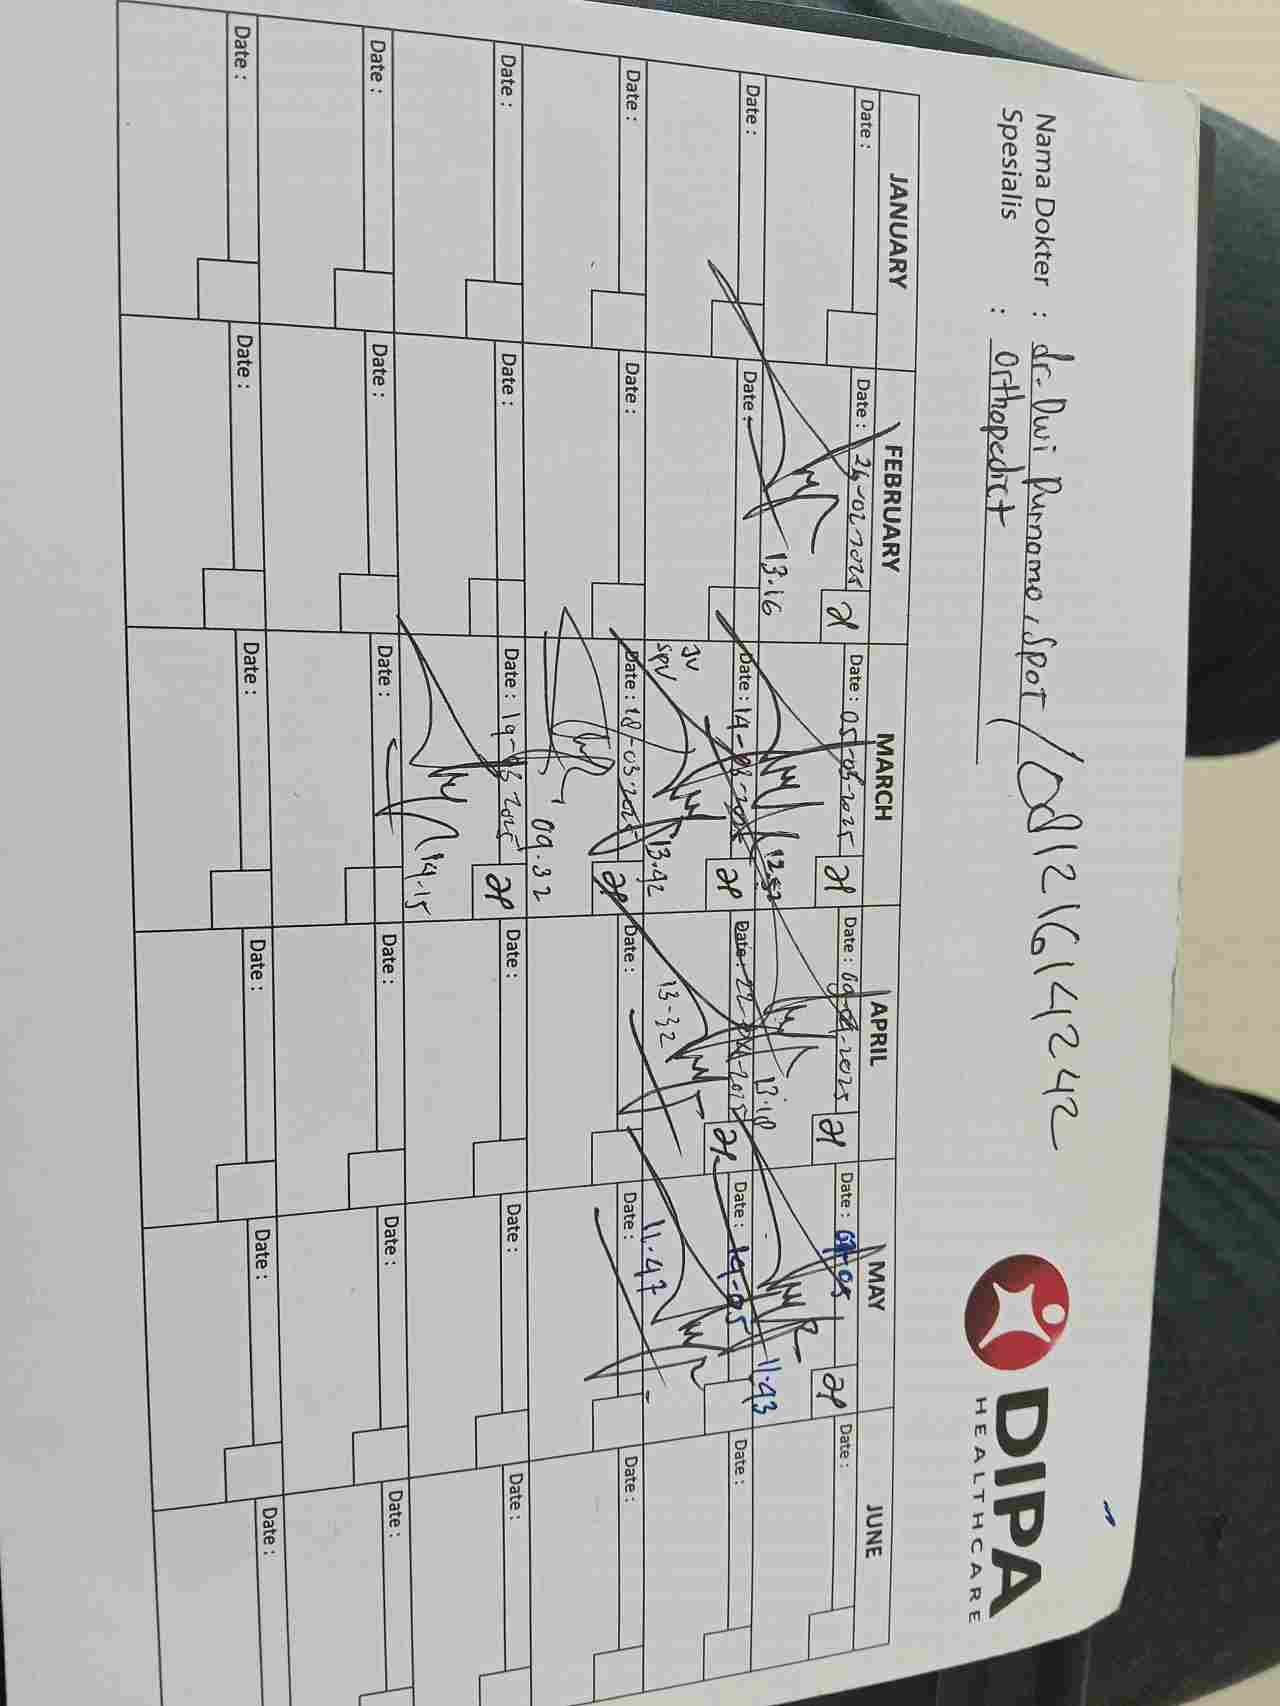 Nama Dokter : dr. Dwi Purnomo, Spot / 081216614242
Spesialis : Orthopedict
DIPA
HEALTHCARE
JANUARY FEBRUARY MARCH APRIL MAY JUNE
Date : Date : 24-02-2025 Date : 05-03-2025 Date : 09-04-2025 Date : 07-05 Date :
13.16 12.52 13.18 11.43
Date : Date : Date : 14-03-2025 Date : 22-04-2025 Date : 19-05 Date :
JV
SPV
13.42 13-32 11.47
Date : Date : Date : 18-03-2025 Date : Date : Date :
09.32
Date : Date : Date : 19-03-2025 Date : Date : Date :
14.15
Date : Date : Date : Date : Date : Date :
Date : Date : Date : Date : Date : Date :